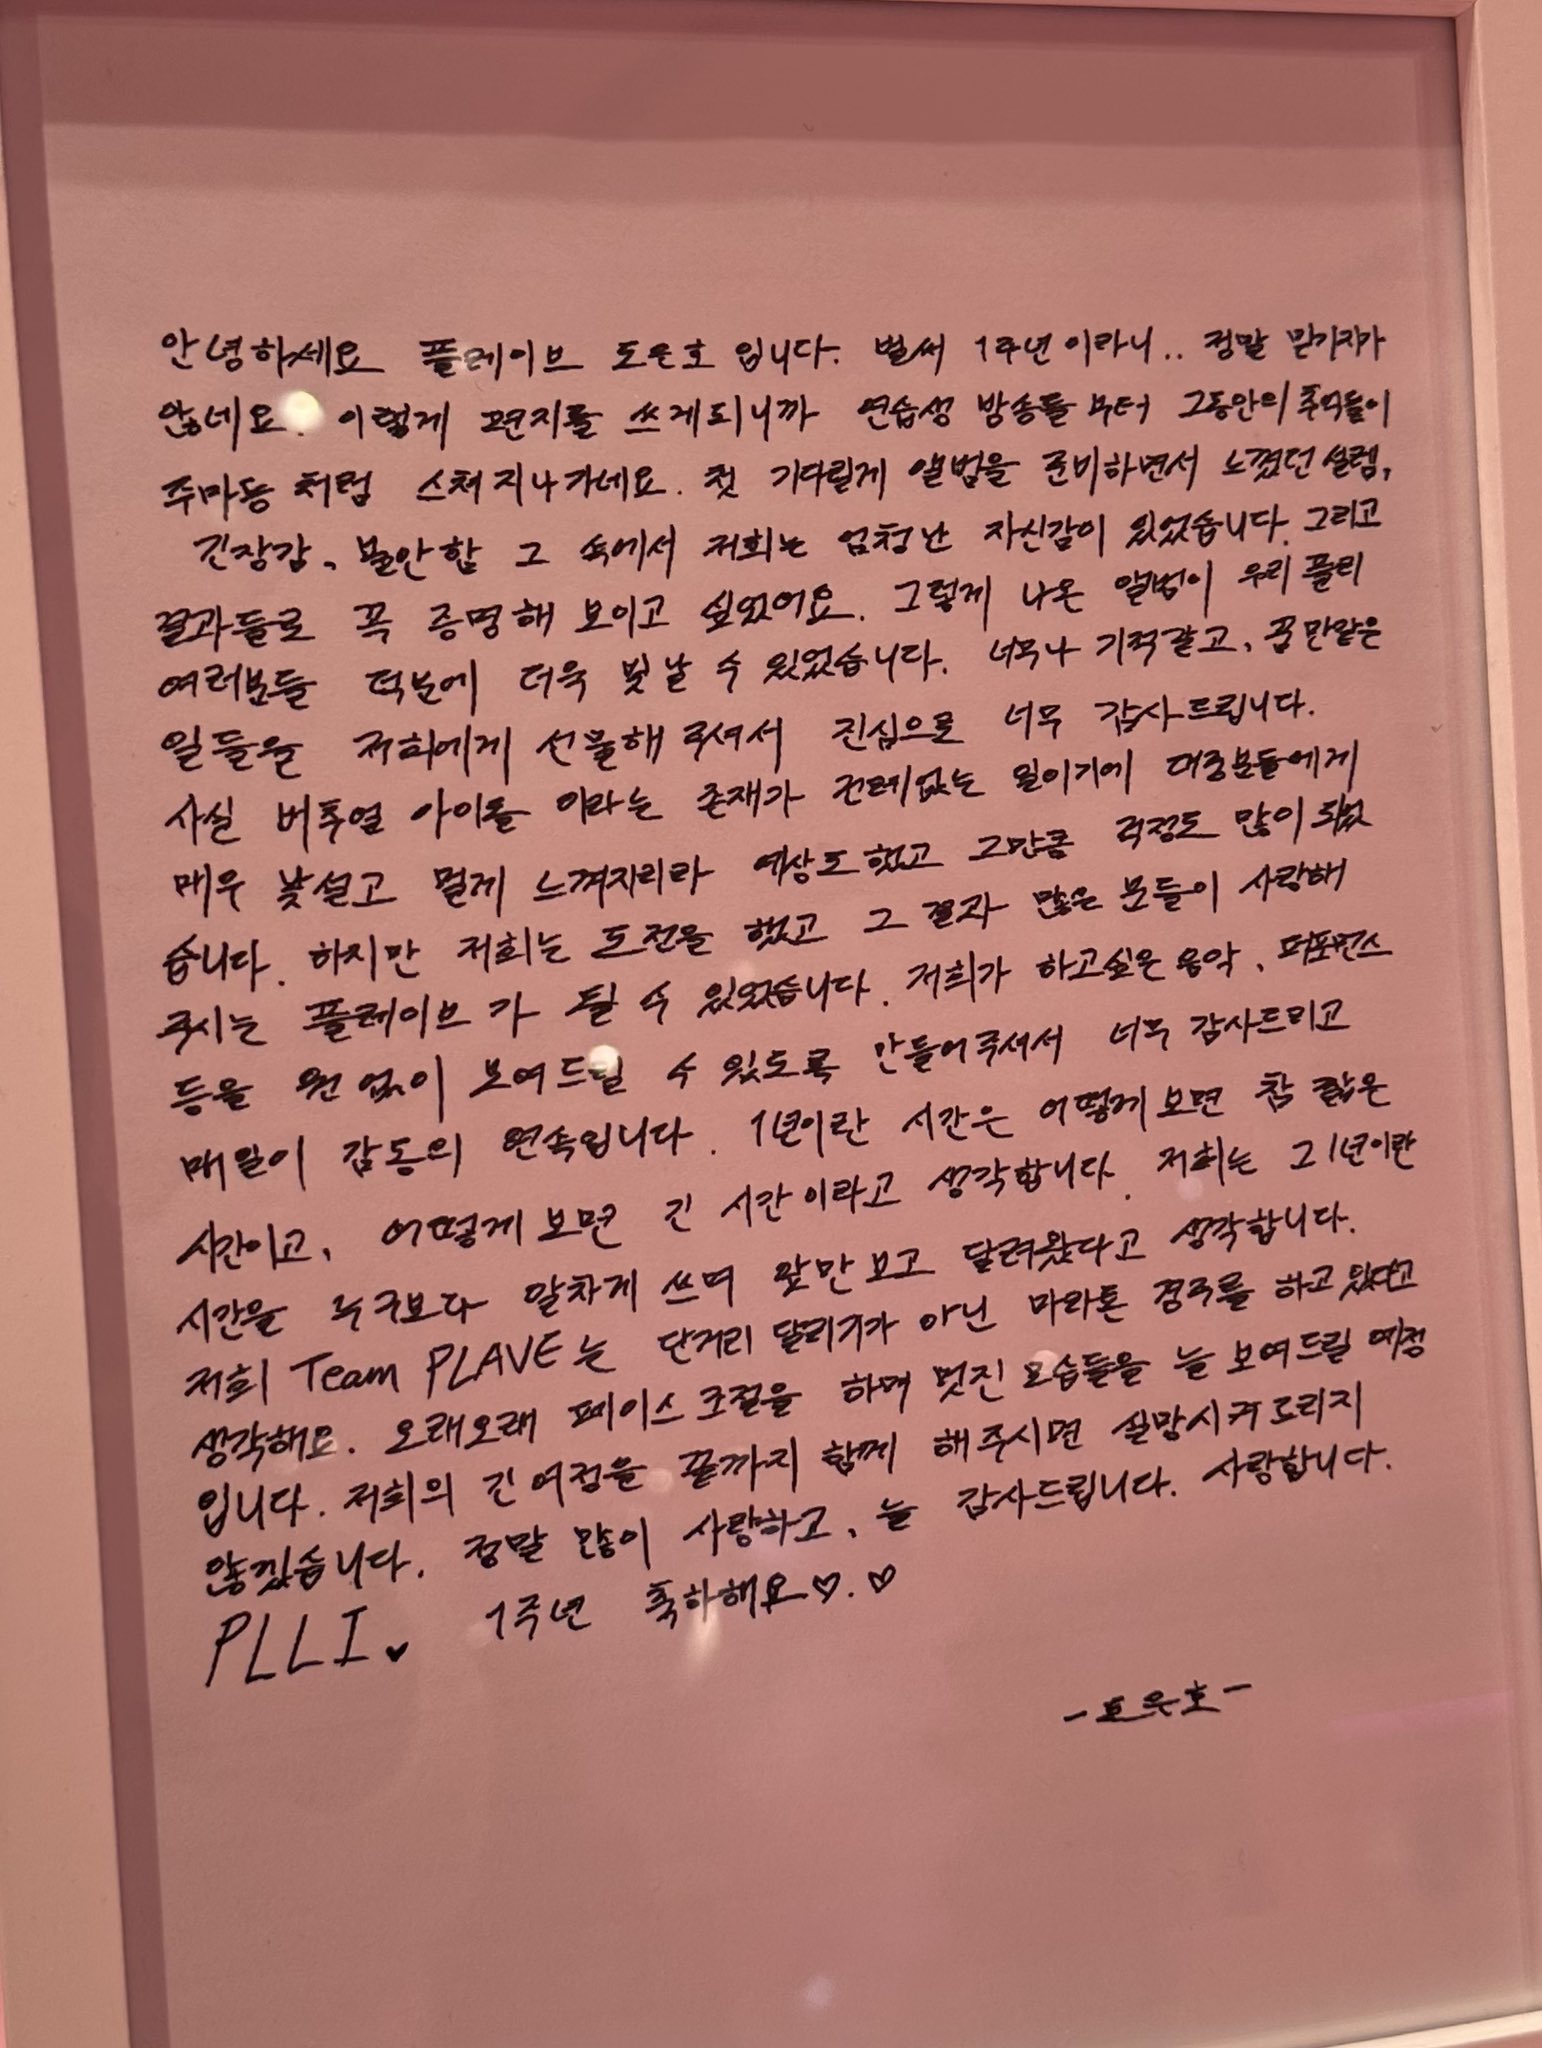 안녕하세요 플레이브 도은호 입니다. 벌써 1주년이라니.. 정말 믿기지가
않네요. 이렇게 편지를 쓰게되니까 연습생 방송들부터 그동안의 추억들이
주마등처럼 스쳐지나가네요. 첫 기다릴게 앨범을 준비하면서 느꼈던 설렘,
긴장감, 불안함 그 속에서 저희는 엄청난 자신감이 있었습니다. 그리고
결과들로 꼭 증명해 보이고 싶었어요. 그렇게 나온 앨범이 우리 플리
여러분들 덕분에 더욱 빛날 수 있었습니다. 너무나 기적같고, 꿈만같은
일들을 저희에게 선물해 주셔서 진심으로 너무 감사드립니다.
사실 버추얼 아이돌 이라는 존재가 전례없는 일이기에 대중분들에게
매우 낯설고 멀게 느껴지리라 예상도 했고 그만큼 걱정도 많이 되었
습니다. 하지만 저희는 도전을 했고 그 결과 많은 분들이 사랑해
주시는 플레이브가 될 수 있었습니다. 저희가 하고싶은 음악, 퍼포먼스
등을 원 없이 보여드릴 수 있도록 만들어주셔서 너무 감사드리고
매일이 감동의 연속입니다. 1년이란 시간은 어떻게보면 참 짧은
시간이고, 어떻게보면 긴 시간이라고 생각합니다. 저희는 그 1년이란
시간을 누구보다 알차게 쓰며 앞만보고 달려왔다고 생각합니다.
저희 Team PLAVE는 단거리 달리기가 아닌 마라톤 경주를 하고있다고
생각해요. 오래오래 페이스 조절을 하며 멋진 모습들을 늘 보여드릴 예정
입니다. 저희의 긴 여정을 끝까지 함께 해주시면 실망시켜드리지
않겠습니다. 정말 많이 사랑하고, 늘 감사드립니다. 사랑합니다.
PLLI♥ 1주년 축하해요♡.♡
-도은호-